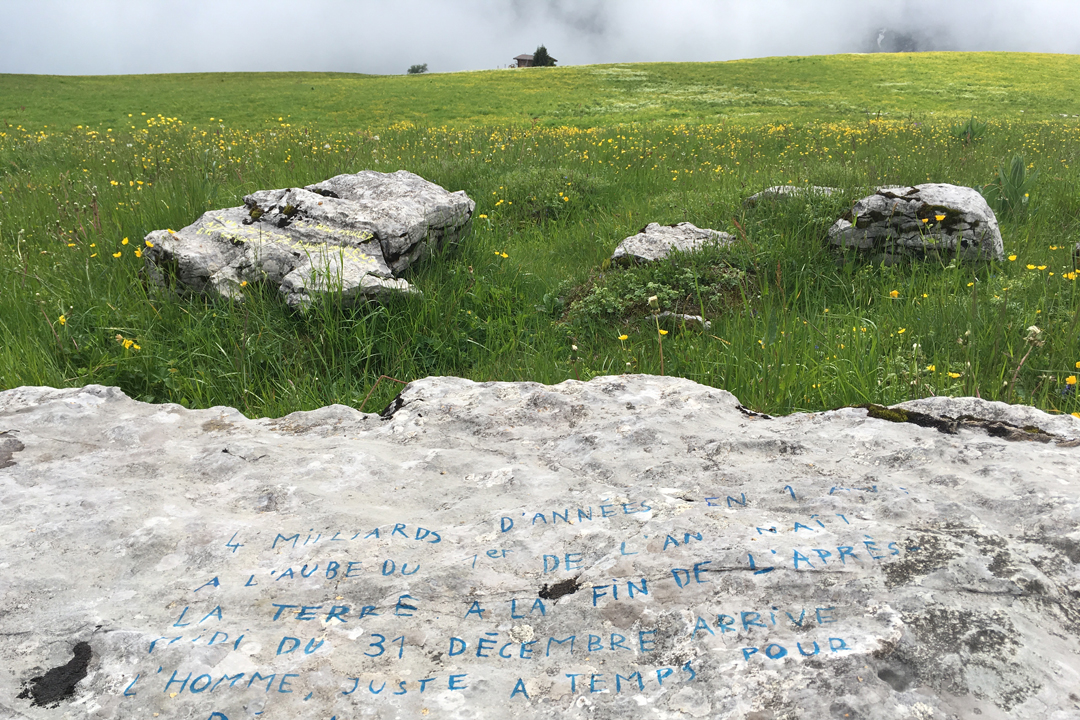 4 MILLIARDS D'ANNEES EN 1 AN
A L'AUBE DU 1er DE L'AN NAÎT
LA TERRE A LA FIN DE L'APRÈS-
MIDI DU 31 DÉCEMBRE ARRIVE
L'HOMME, JUSTE A TEMPS POUR